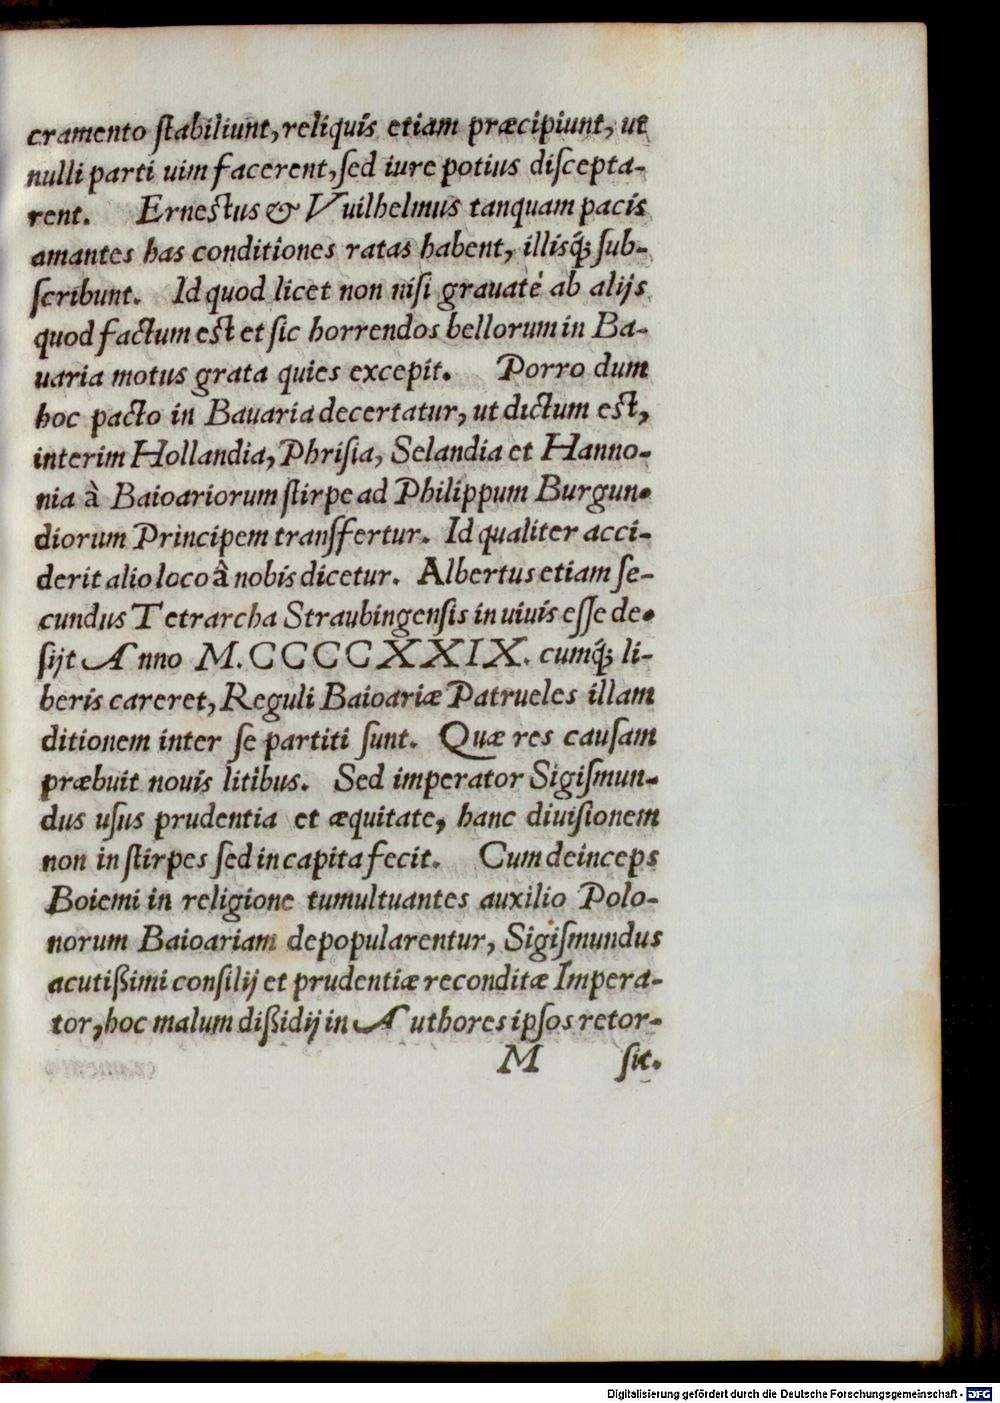 cramento ſtabiliunt, reliquis etiam præcipiunt, ut
nulli parti uim facerent, ſed iure potius diſcepta-
rent. Erneſtus & Vuilhelmus tanquam pacis
amantes has conditiones ratas habent, illisq́; ſub-
ſcribunt. Id quod licet non niſi grauatè ab alijs
quod factum eſt et ſic horrendos bellorum in Ba-
uaria motus grata quies excepit. Porro dum
hoc pacto in Bauaria decertatur, ut dictum eſt,
interim Hollandia, Phriſia, Selandia et Hanno-
nia à Baioariorum ſtirpe ad Philippum Burgun-
diorum Principem tranſfertur. Id qualiter acci-
derit alio loco â nobis dicetur. Albertus etiam ſe-
cundus Tetrarcha Straubingenſis in uiuis eſſe de-
ſijt Anno M.CCCCXXIX. cumq́; li-
beris careret, Reguli Baioariæ Patrueles illam
ditionem inter ſe partiti ſunt. Quæ res cauſam
præbuit nouis litibus. Sed imperator Sigiſmun-
dus uſus prudentia et æquitate, hanc diuiſionem
non in ſtirpes ſed in capita fecit. Cum deinceps
Boiemi in religione tumultuantes auxilio Polo-
norum Baioariam depopularentur, Sigiſmundus
acutißimi conſilij et prudentiæ reconditæ Impera-
tor, hoc malum dißidij in Authores ipſos retor-
M ſit.
Digitalisierung gefördert durch die Deutsche Forschungsgemeinschaft - DFG